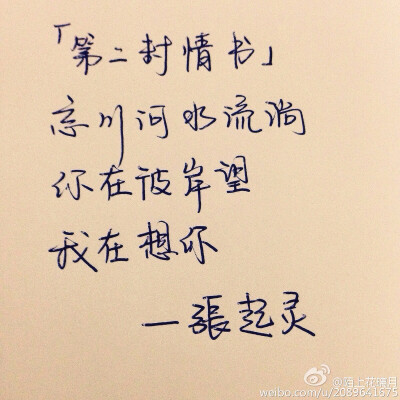 「第二封情书」
忘川河水流淌
你在彼岸望
我在想你
一張起灵
weibo.com/u/2089641575